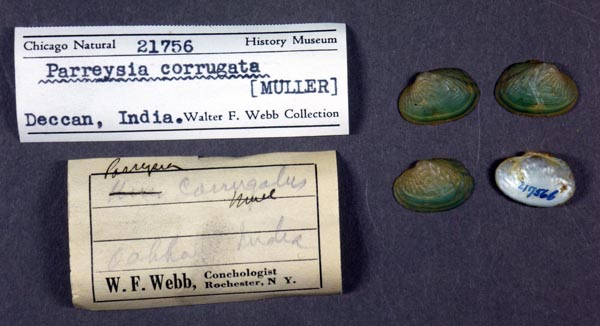 Chicago Natural 21756 History Museum
Parreysia corrugata
[MULLER]
Deccan, India. Walter F. Webb Collection
Parreysia
corrugatus
Mull
India
W. F. Webb, Conchologist
Rochester, N Y.